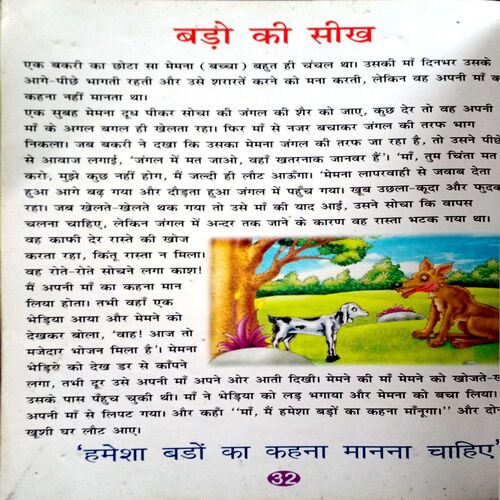 बड़ो की सीख
एक बकरी का छोटा सा मेमना (बच्चा) बहुत ही चंचल था। उसकी माँ दिनभर उसके
आगे-पीछे भागती रहती और उसे शरारतें करने को मना करती, लेकिन वह अपनी माँ का
कहना नहीं मानता था।
एक सुबह मेमना दूध पीकर सोचा की जंगल की शैर को जाए, कुछ देर तो वह अपनी
माँ के अगल बगल ही खेलता रहा। फिर माँ से नजर बचाकर जंगल की तरफ भाग
निकला। जब बकरी ने देखा कि उसका मेमना जंगल की तरफ जा रहा है, तो उसने पीछे
से आवाज लगाई, 'जंगल में मत जाओ, वहाँ खतरनाक जानवर हैं'। 'माँ, तुम चिंता मत
करो, मुझे कुछ नहीं होगा, मैं जल्दी ही लौट आऊँगा। 'मेमना लापरवाही से जवाब देता
हुआ आगे बढ़ गया और दौड़ता हुआ जंगल में पहुँच गया। खूब उछला-कूदा और फुदक
रहा। जब खेलते-खेलते थक गया तो उसे माँ की याद आई, उसने सोचा कि वापस
चलना चाहिए, लेकिन जंगल में अन्दर तक जाने के कारण वह रास्ता भटक गया था।
वह काफी देर रास्ते की खोज
करता रहा, किंतु रास्ता न मिला।
वह रोते-रोते सोचने लगा काश!
मैं अपनी माँ का कहना मान
लिया होता। तभी वहाँ एक
भेड़िया आया और मेमने को
देखकर बोला, 'वाह! आज तो
मजेदार भोजन मिला है'। मेमना
भेड़िये को देख डर से काँपने
लगा, तभी दूर उसे अपनी माँ अपने ओर आती दिखी। मेमने की माँ मेमने को खोजते-ख
उसके पास पँहुच चुकी थी। माँ ने भेड़िया को लड़ भगाया और मेमना को बचा लिया।
अपनी माँ से लिपट गया। और कहाँ "माँ, मैं हमेशा बड़ों का कहना मानूँगा।" और दोन
खुशी घर लौट आए।
'हमेशा बडों का कहना मानना चाहिए'
32